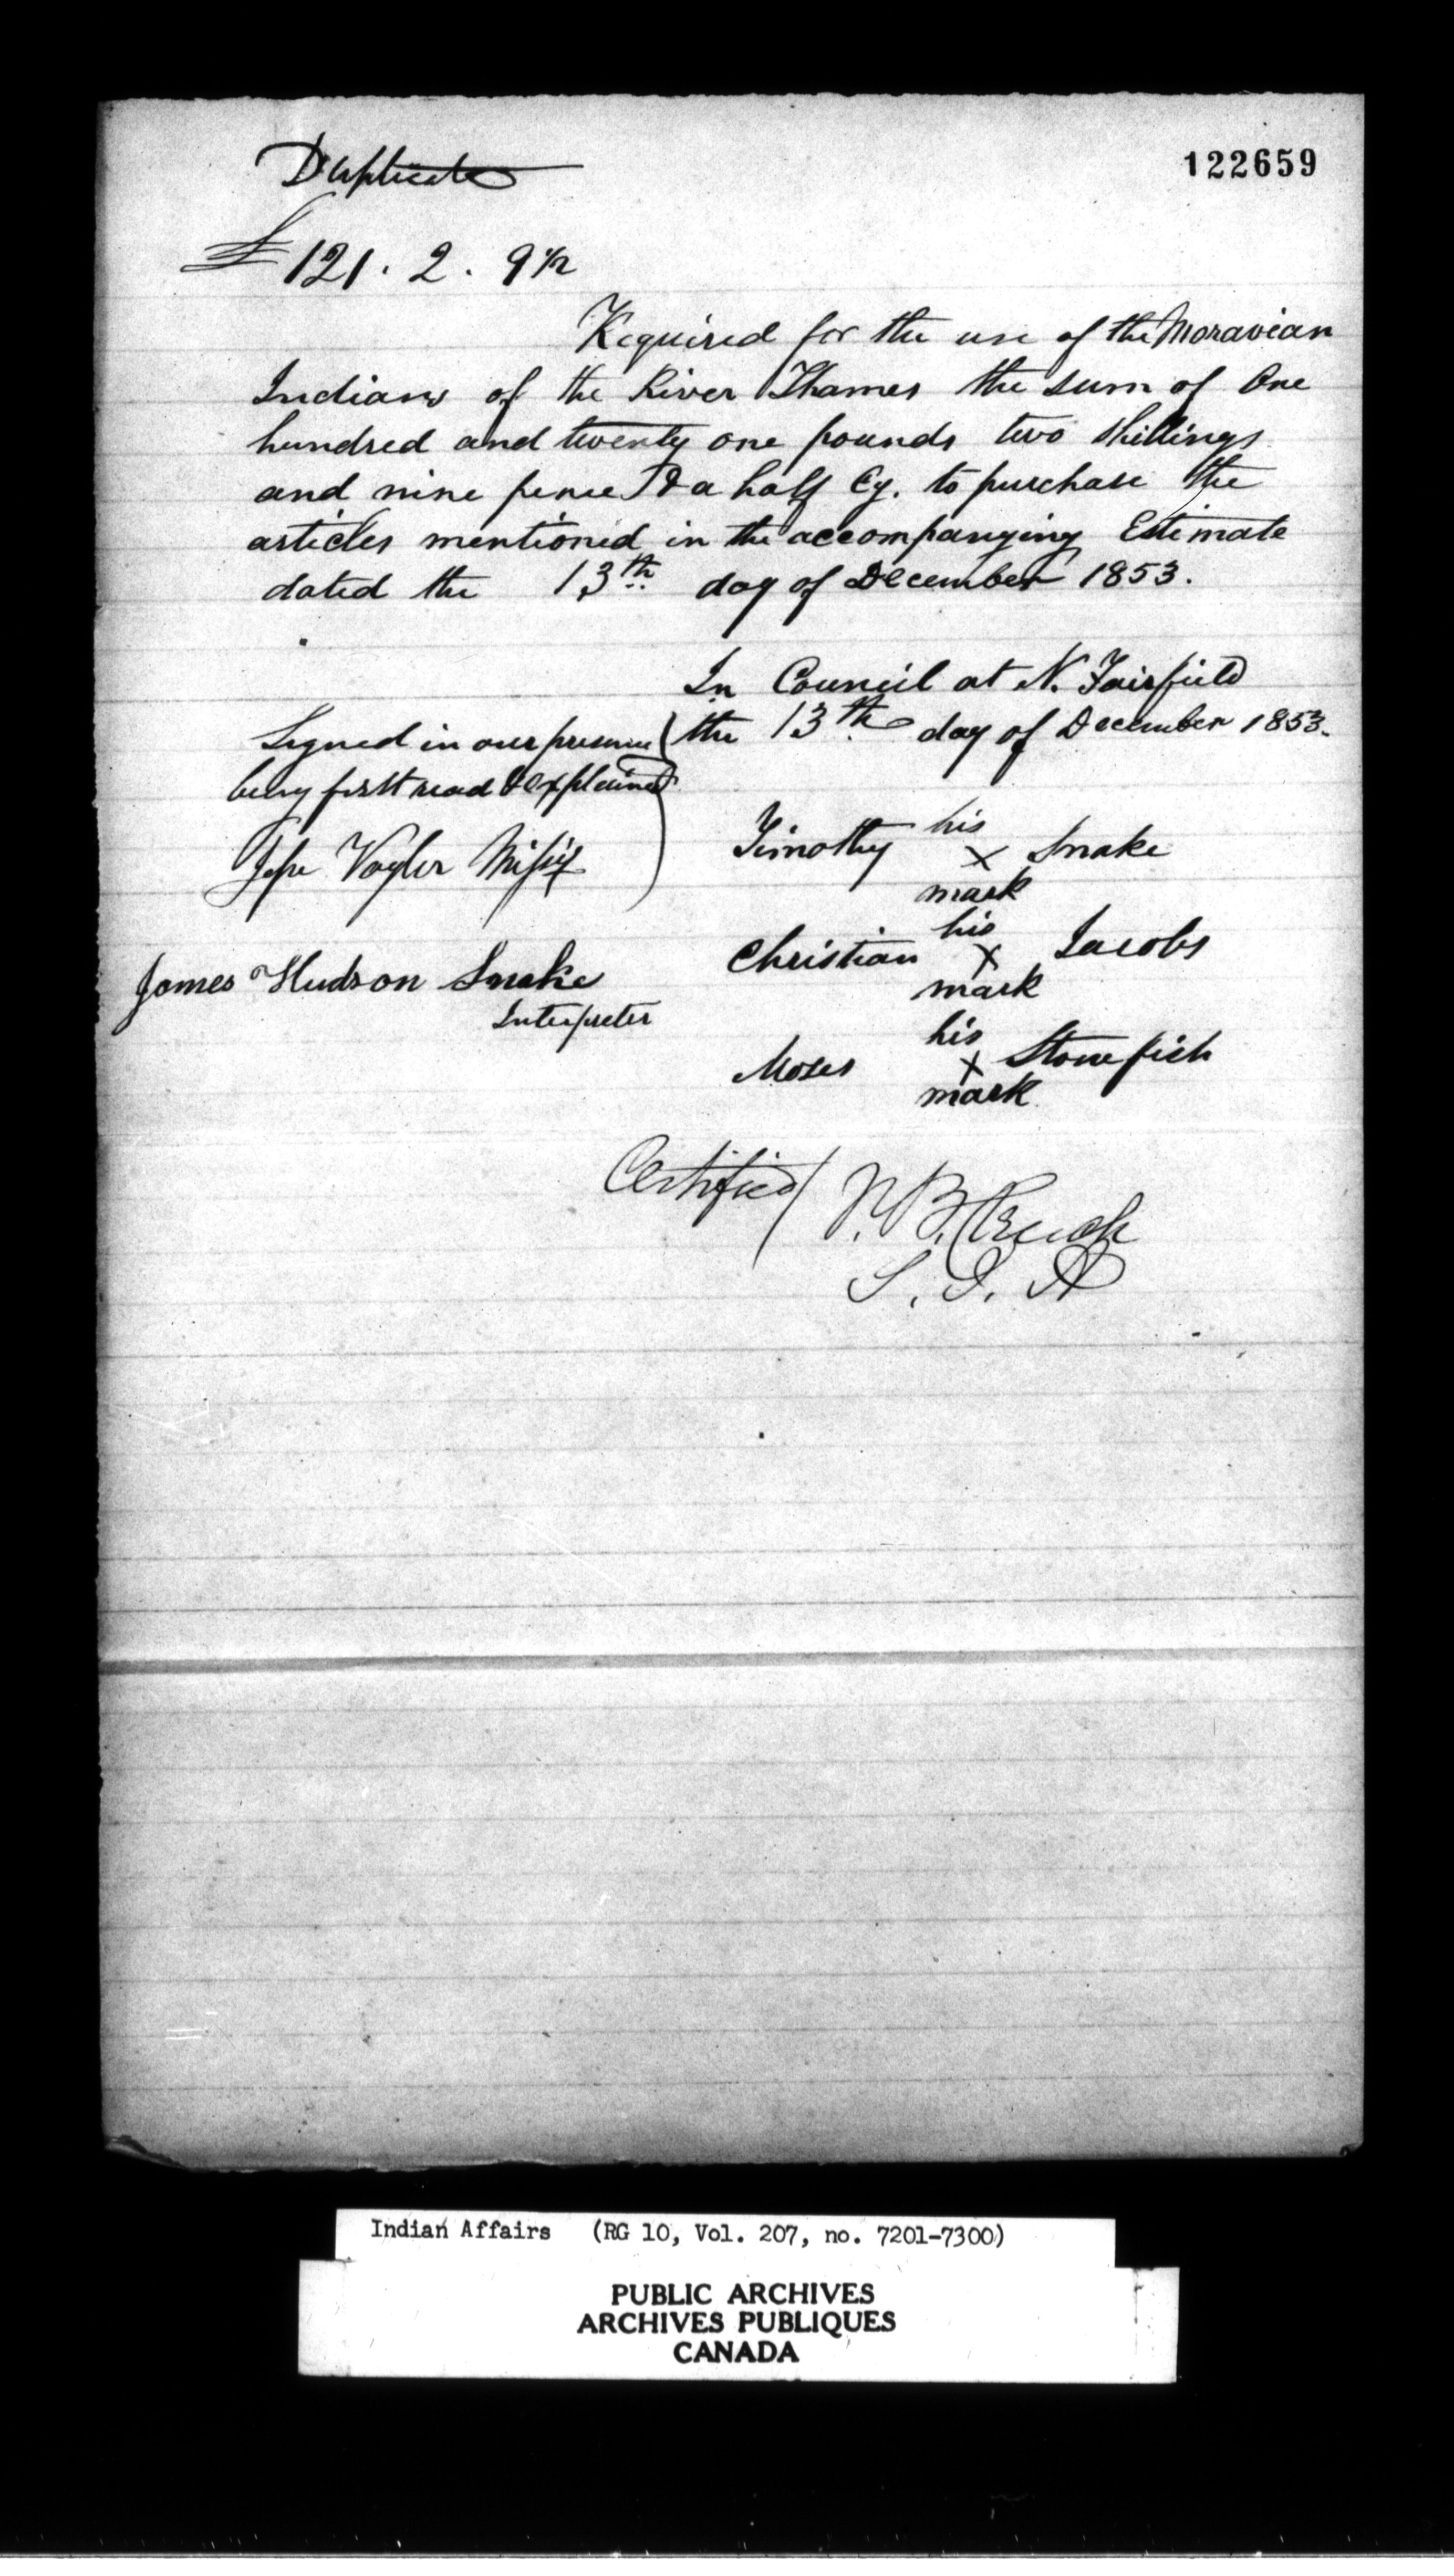 Duplicate
122659
£121. 2. 9 1/2
Required for the use of the Moravian
Indians of the River Thames the sum of One
hundred and twenty one pounds two shillings
and nine pence & a half Cy. to purchase the
articles mentioned in the accompanying Estimate
dated the 13th day of December 1853.
In Council at N. Fairfield
the 13th day of December 1853.
Signed in our presence
being first read & explained
Jesse Vogler Missy
James Hudson Snake
Interpreter
his
Timothy x Snake
mark
his
Christian x Jacobs
mark
his
Moses x Stonefish
mark
Certified
S. I. A
Indian Affairs (RG 10, Vol. 207, no. 7201-7300)
PUBLIC ARCHIVES
ARCHIVES PUBLIQUES
CANADA